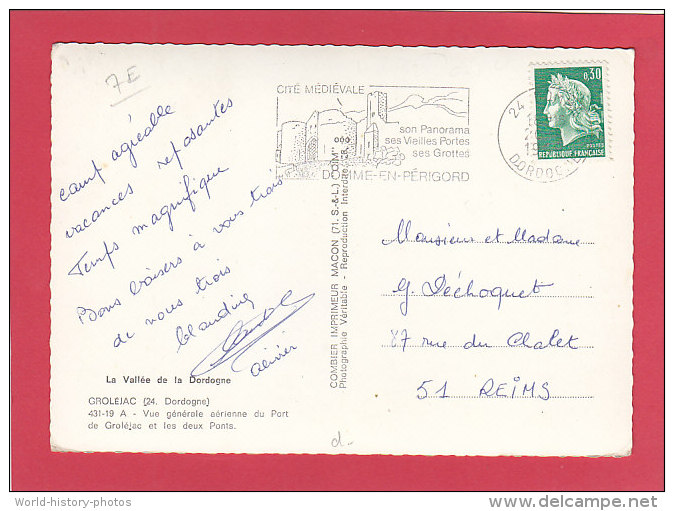 7E
CITÉ MÉDIÉVALE
son Panorama
ses Vieilles Portes
ses Grottes
DOMME-EN-PÉRIGORD
0,30
POSTES
REPUBLIQUE FRANÇAISE
24
DORDOGNE
camp agréable
vacances reposantes
Temps magnifique
Bons baisers à vous trois
de nous trois
blandine
Olivier
La Vallée de la Dordogne
GROLÉJAC (24. Dordogne)
431-19 A - Vue générale aérienne du Port
de Groléjac et les deux Ponts.
COMBIER IMPRIMEUR MACON (71. S.-&-L.) "CIM"
Photographie Véritable - Reproduction Interdite
Monsieur et Madame
G. Déchoquet
87 rue du Chalet
51 REIMS
d-
World-history-photos
delcampe.net